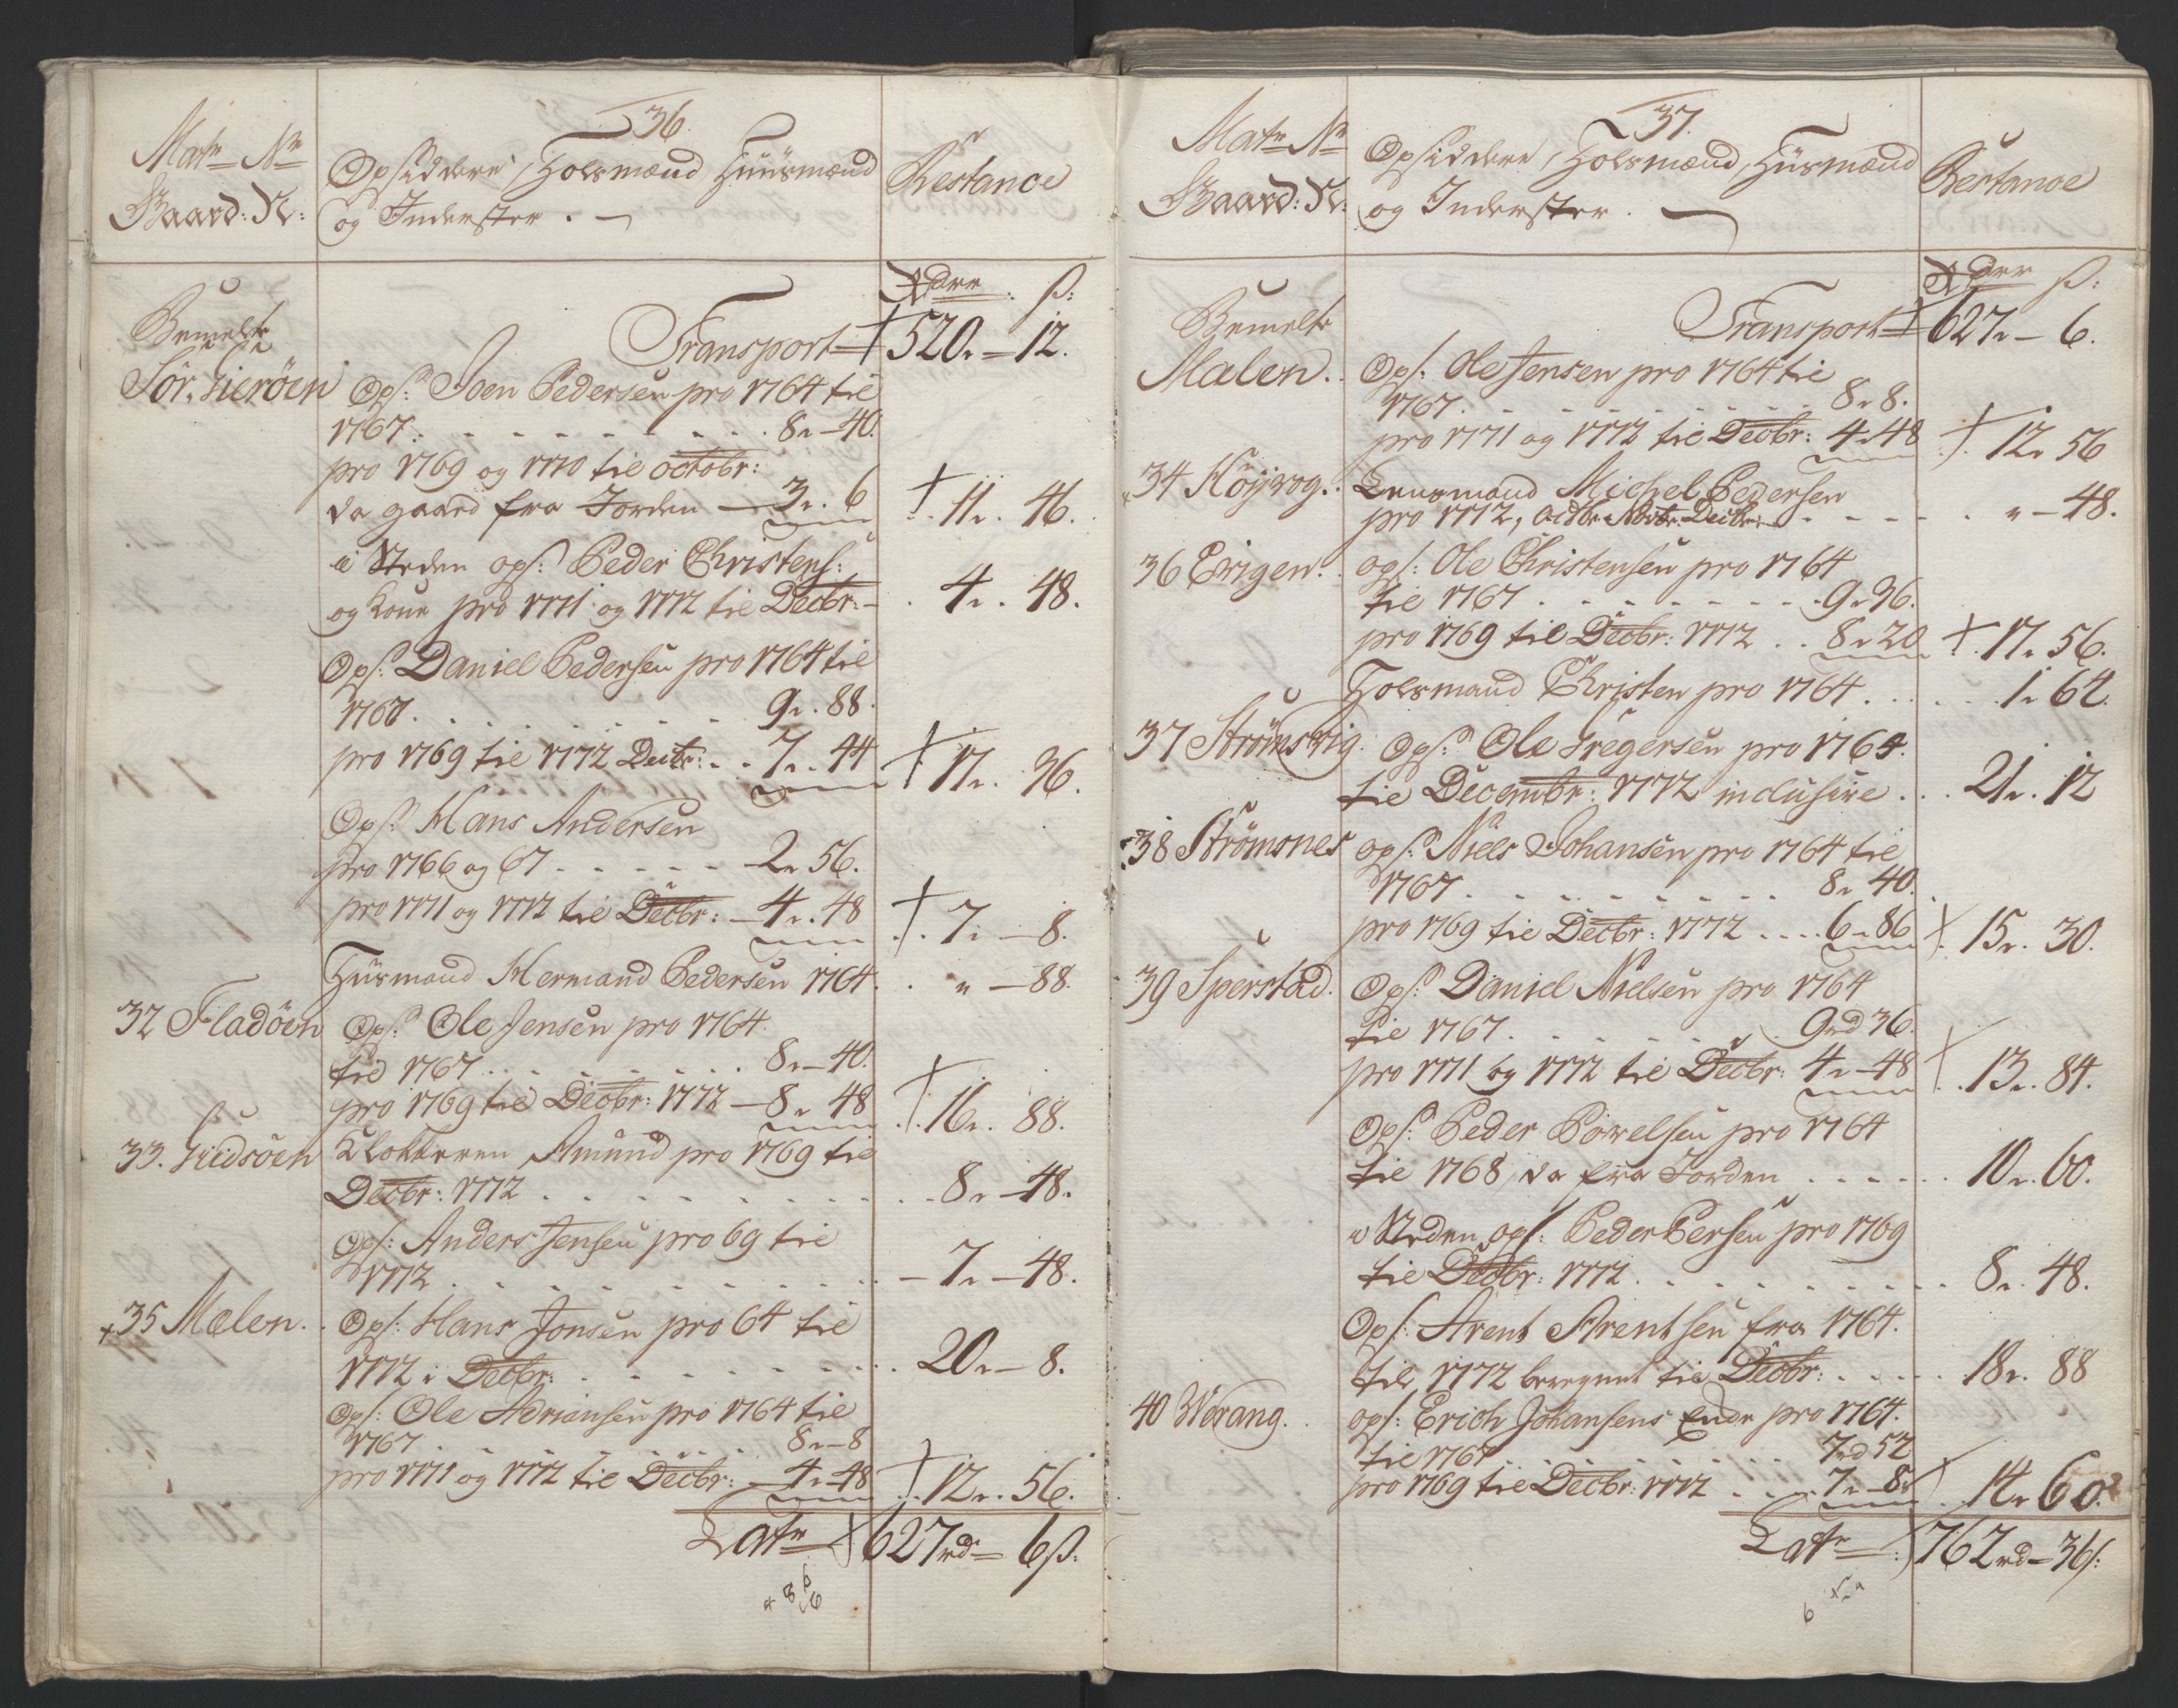 36.
Matr Nr
Gaard: N:
Opsiddere, Folgsmænd Huusmænd
og Inderster. —
Restance
Rdlr ß:
Bemelte
Sör. Gieröen
Transport 520. — 12.
Ops: Joen Pedersen pro 1764 til
1767. . . . . . . . . 8 r — 40.
pro 1769 og 1770 til octobr:
da gaaed fra Jorden — 3 r. 6
11 r. 46.
i Steden ops: Peder Christens:
og Kone pro 1771 og 1772 til Decbr: — 4 r. 48.
Ops: Daniel Pedersen pro 1764 til
1767. . . . . . . . 9 r. 88.
pro 1769 til 1772 Decbr: . . 7 r. 44
17 r. 36.
Ops: Hans Andersen
pro 1766 og 67 . . . . . — 2 r 56.
pro 1771 og 1772 til Decbr: — 4 r. 48
7 r — 8.
Huusmand Hermand Pedersen 1764. . " — 88.
32 Fladöen
Ops: Ole Jensen pro 1764.
til 1767 . . . . . . . 8 r — 40.
pro 1769 til Decbr: 1772 — 8 r 48
16 r. 88.
33. Giedsöen
Klokkeren Amund pro 1769 til
Decbr: 1772 . . . . . . . . . 8 r — 48.
Ops: Anders Jensen pro 69 til
1772 . . . . . . . . . — 7 r — 48.
35 Mælen.
Ops: Hans Jonsen pro 64 til
1772 i Decbr: . . . . . . . 20 r — 8.
Ops: Ole Adriansen pro 1764 til
1767 . . . . . . . . 8 r — 8
pro 1771 og 1772 til Decbr: — 4 r 48
12 r. 56.
Latr 627 rd — 6 ß:
37.
Matr Nr
Gaard: N:
Opsiddere, Folgsmænd, Huusmænd
og Inderster. —
Restance
Rdlr ß:
Bemelte
Malen.
Transport 627 r — 6.
Ops: Ole Jensen pro 1764 til
1767. . . . . . . . . 8 r 8.
pro 1771 og 1772 til Decbr: 4 r 48
12 r 56
34 Höyvog.
Lensmand Michel Pedersen
pro 1772, Octbr Novbr Decbr: . . . . . " — 48.
36 Evigen.
ops: Ole Christensen pro 1764
til 1767 . . . . . . . . 9 r 36.
pro 1769 til Decbr: 1772 . . 8 r 20
17 r 56.
Folgsmand Christen pro 1764. . . . . 1 r 64.
37 Strömsvig.
Ops: Ole Gregersen pro 1764.
til Decembr: 1772 inclusive . . . 21 r. 12
38 Strömsnes
ops: Niels Johansen pro 1764 til
1767 . . . . . . . . 8 r 40.
pro 1769 til Decbr: 1772 . . . . 6 r 86
15 r. 30.
39 Sperstad.
Ops: Daniel Nielsen pro 1764
til 1767. . . . . . . 9 rd 36.
pro 1771 og 1772 til Decbr: 4 r — 48
13 r. 84.
Ops: Peder Powelsen pro 1764
til 1768, da fra Jorden . . . . . . 10 r. 60.
i Steden ops: Peder Persen pro 1769
til Decbr: 1772. . . . . . . . . 8 r. 48.
Ops: Arent Arentsen fra 1764.
til 1772 beregnet til Decbr: . . . . . 18 r. 88
40 Worang.
ops: Erich Johansens Enke pro 1764.
til 1767 . . . . . . . . 7 rd 52
pro 1769 til Decbr: 1772 . . . . 7 r — 8
14 r 60.
Latr 762 rd — 36 ß: